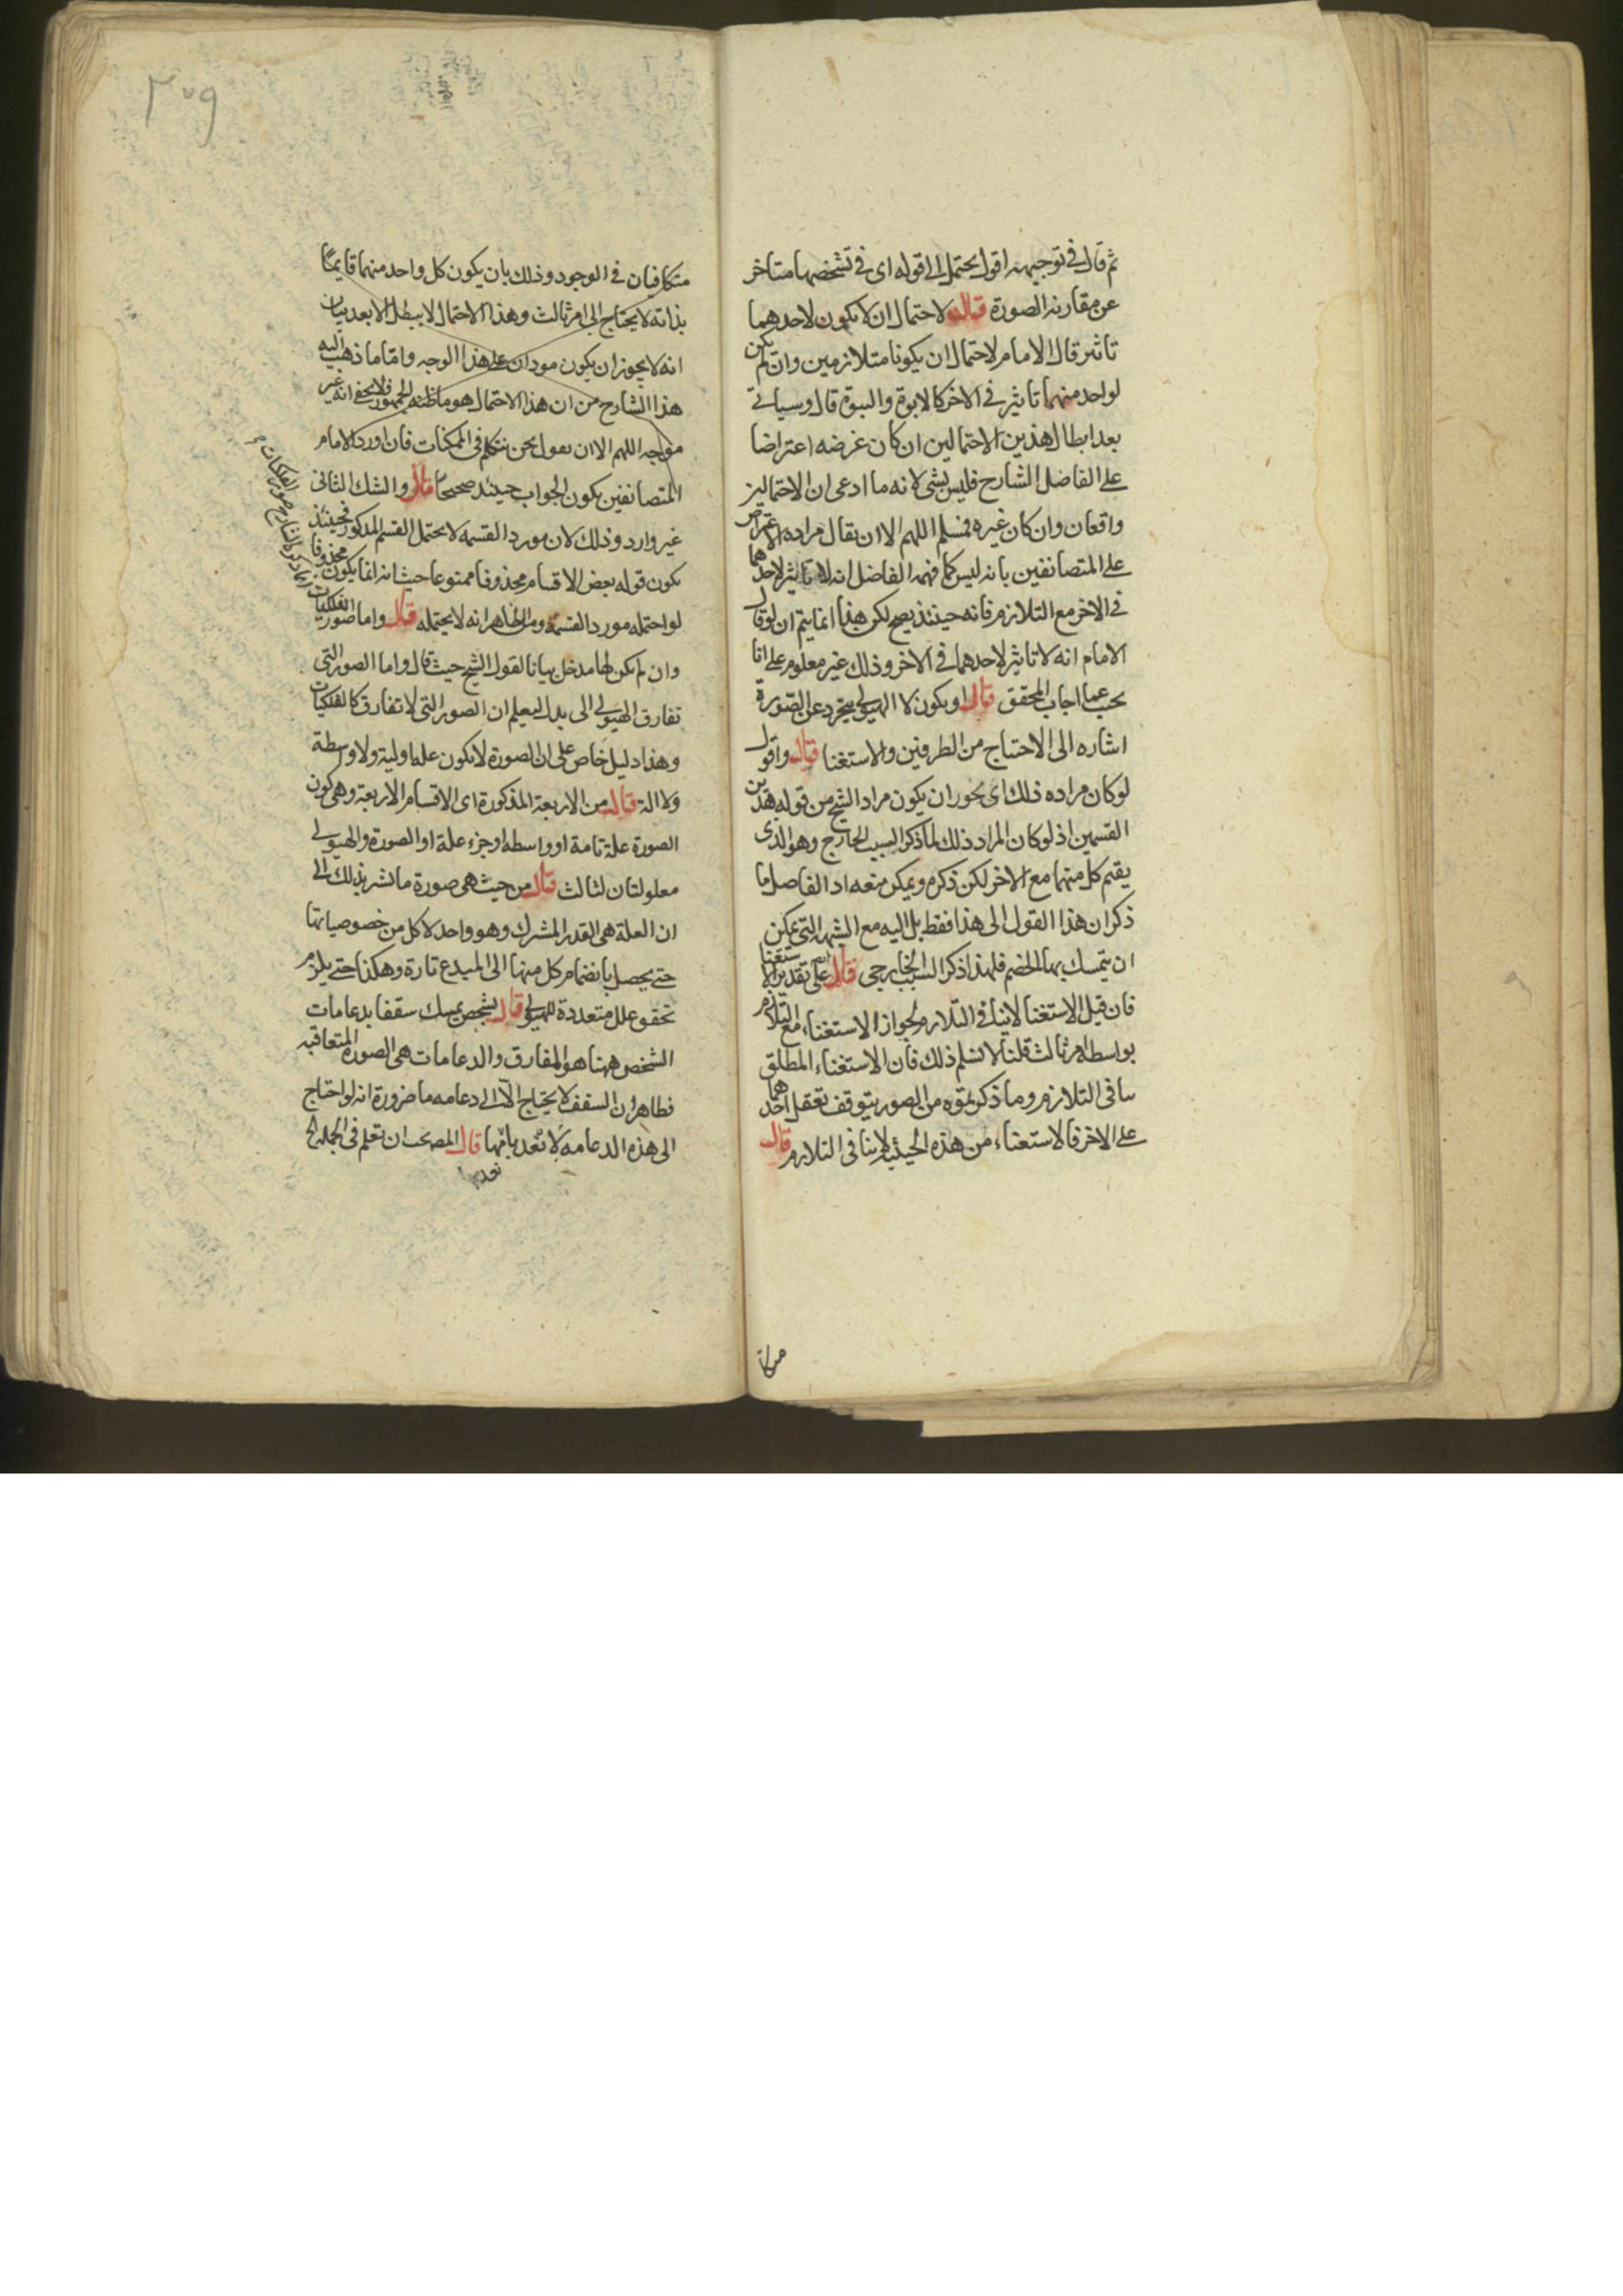 ثم قال في توجيهه اقول يحتمل الى قوله اى في تشخصها متاخر
عن مقارنة الصورة قال لاحتمال ان لا يكون لاحدهما
تاثير قال الامام لاحتمال ان يكونا متلازمين وان لم يكن
لواحد منهما تاثير في الاخر كالابوة والبنوة قال وسياتي
بعد ابطال هذين الاحتمالين ان كان غرضه اعتراضا
على الفاضل الشارح فليس بشى لانه ما ادعى ان الاحتمالين
واقعان وان كان غيره فمسلم اللهم الا ان يقال مراده الاعتراض
على المتضائفين بانه ليس كما فهمه الفاضل انه لا تاثير لاحدهما
في الاخر مع التلازم فانه حينئذ يصح لكن هذا انما يتم ان لو قال
الامام انه لا تاثير لاحدهما في الاخر وذلك غير معلوم على انا
نجيب عما اجاب المحقق قال او يكون لا الهيولى يتجرد عن الصورة
اشاره الى الاحتياج من الطرفين والاستغنا قال واقول
لو كان مراده ذلك اى يجوز ان يكون مراد الشيخ من قوله هذين
القسمين اذ لو كان المراد ذلك لما ذكر السبب الخارج وهو الذى
يقيم كل منهما مع الاخر لكن ذكره ويمكن منعه اذ الفاضل ما
ذكر ان هذا القول الى هذا فقط بل اليه مع الشبهة التي يمكن
ان يتمسك بها الخصم فلهذا ذكر السبب الخارجى قال على تقدير الاستغنا
فان قيل الاستغنا لا ينافى التلازم لجواز الاستغناء مع التلازم
بواسطة امر ثالث قلنا لا نسلم ذلك فان الاستغناء المطلق
ينافى التلازم وما ذكرتموه من الصور يتوقف تعقل احدهما
على الاخر فالاستغناء من هذه الحيثية لا ينافى التلازم قال
متكا
٢٠٩
متكافيان في الوجود وذلك بان يكون كل واحد منهما قايمًا
بذاته لا يحتاج الى امر ثالث وهذا الاحتمال لا يبطل الا بعد بيان
انه لا يجوز ان يكون موجودان على هذا الوجه واما ما ذهب اليه
هذا الشارح من ان هذا الاحتمال هو ما ظنه الجمهور فلا يخفى انه غير
موجه اللهم الا ان يقول نحن نتكلم في الممكنات فان اورد الامام
المتضائفين يكون الجواب حينئذ صحيحا قال والشك الثانى
غير وارد وذلك لان مورد القسمه لا يحتمل القسم المذكور فحينئذ
يكون قوله بعض الاقسام محذوفا ممنوعا حيث انه انما يكون محذوفا
لو احتمله مورد القسمة ومن الظاهر انه لا يحتمله قال واما صور الفلكيات
وان لم يكن لها مدخل بيانا لقول الشيخ حيث قال واما الصور التي
تفارق الهيولى الى بدل ليعلم ان الصور التي لا تفارق كالفلكيات
وهذا دليل خاص على ان الصورة لا يكون علة اولية ولا واسطة
ولا الة قال من الاربعة المذكورة اى الاقسام الاربعة وهى كون
الصورة علة تامة او واسطه او جزء علة او الصورة والهيولى
معلولتان لثالث قال من حيث هى صورة ما نشير بذلك الى
ان العلة هى القدر المشترك وهو واحد لا كل من خصوصياتها
حتى يحصل بانضمام كل منها الى المبدع تارة وهكذا حتى يلزم
تحقق علل متعددة للهيولى قال بشخص يمسك سقفا بدعامات
الشخص ههنا هو المفارق والدعامات هى الصورة المتعاقبه
فظاهر ان السقف لا يحتاج الا الى دعامه ما ضرورة انه لو احتاج
الى هذه الدعامه لانعدم بانعدامها قال المص يجب ان تعلم في الجمله الخ